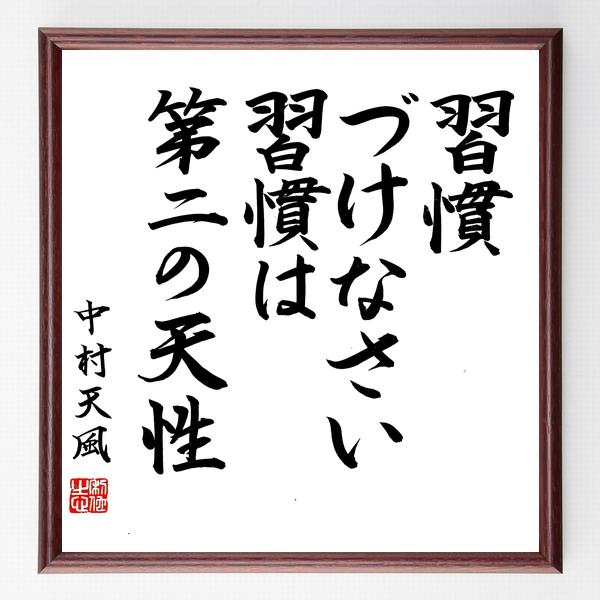 習慣
づけなさい
習慣は
第二の天性
中村天風